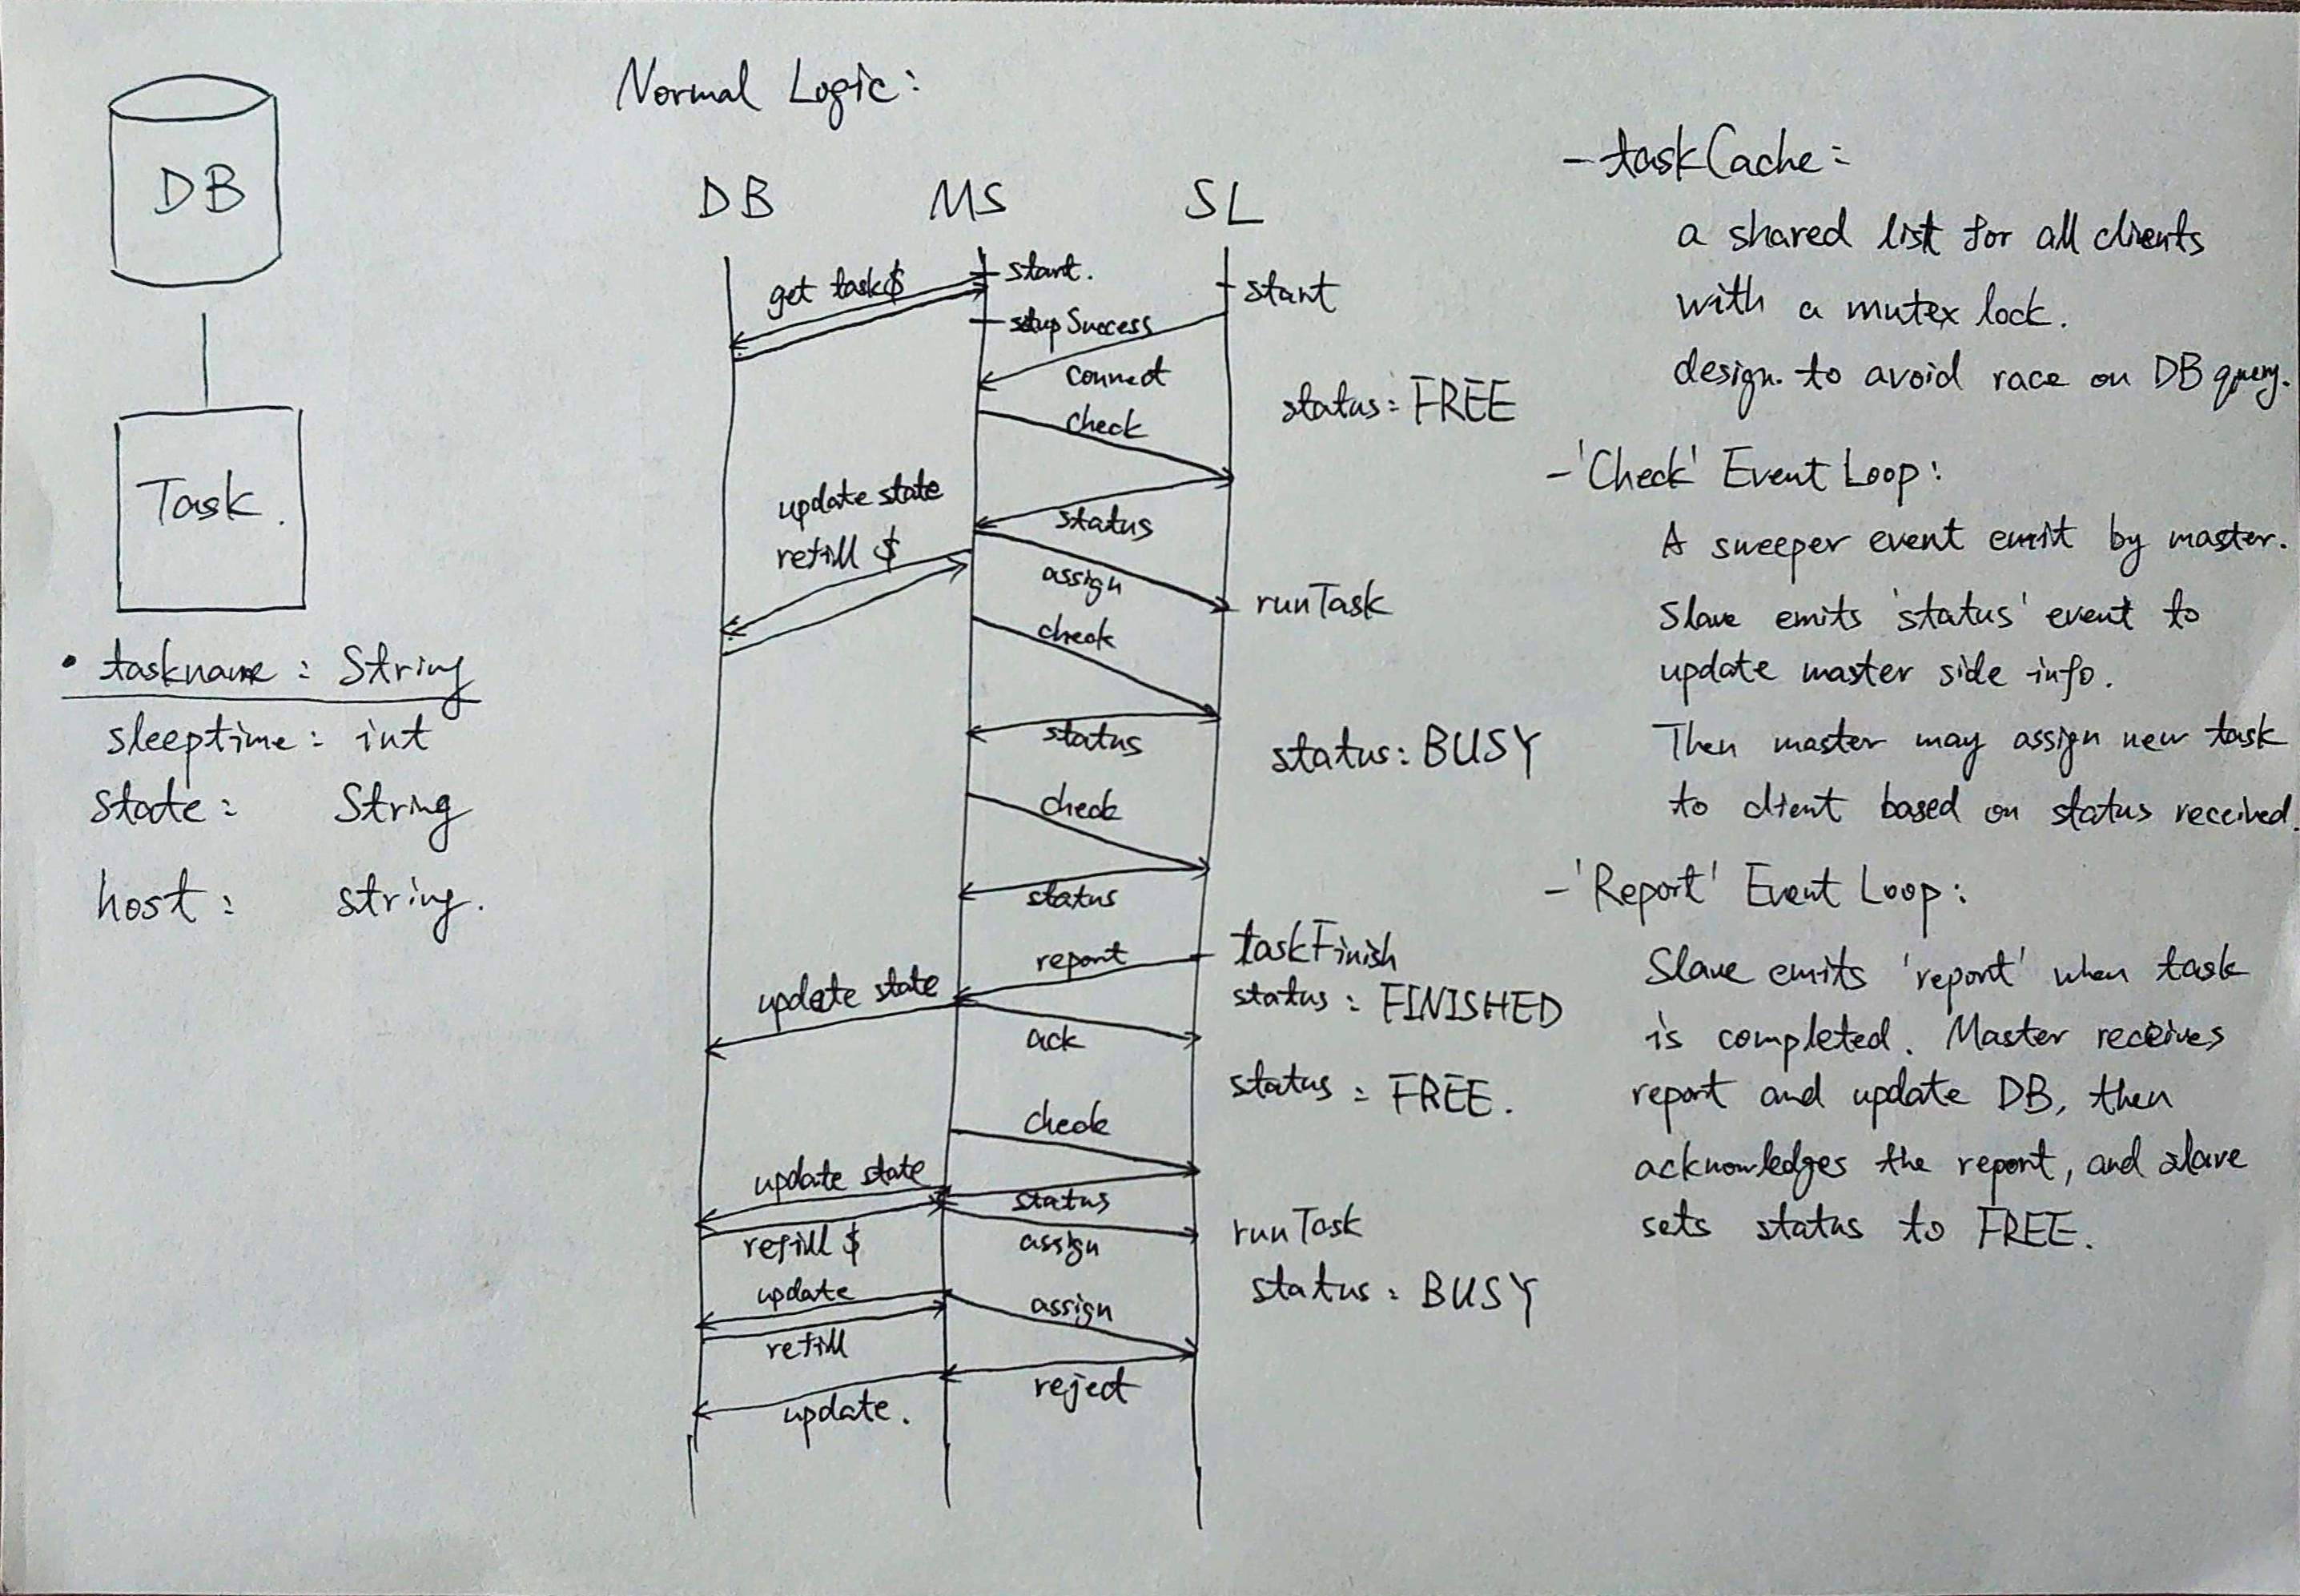 DB
Task.
• taskname : String
sleeptime : int
state : String
host : string.
Normal Logic :
DB MS SL
start.
get task$
start
setup Success
connect
status : FREE
check
update state
status
refill $
assign
runTask
check
status
status : BUSY
check
status
taskFinish
report
update state
status : FINISHED
ack
status : FREE.
check
update state
status
runTask
refill $
assign
update
status : BUSY
assign
refill
reject
update.
- taskCache :
a shared list for all clients
with a mutex lock.
design. to avoid race on DB query.
- 'Check' Event Loop :
A sweeper event emit by master.
Slave emits 'status' event to
update master side info.
Then master may assign new task
to client based on status received.
- 'Report' Event Loop :
Slave emits 'report' when task
is completed. Master receives
report and update DB, then
acknowledges the report, and slave
sets status to FREE.